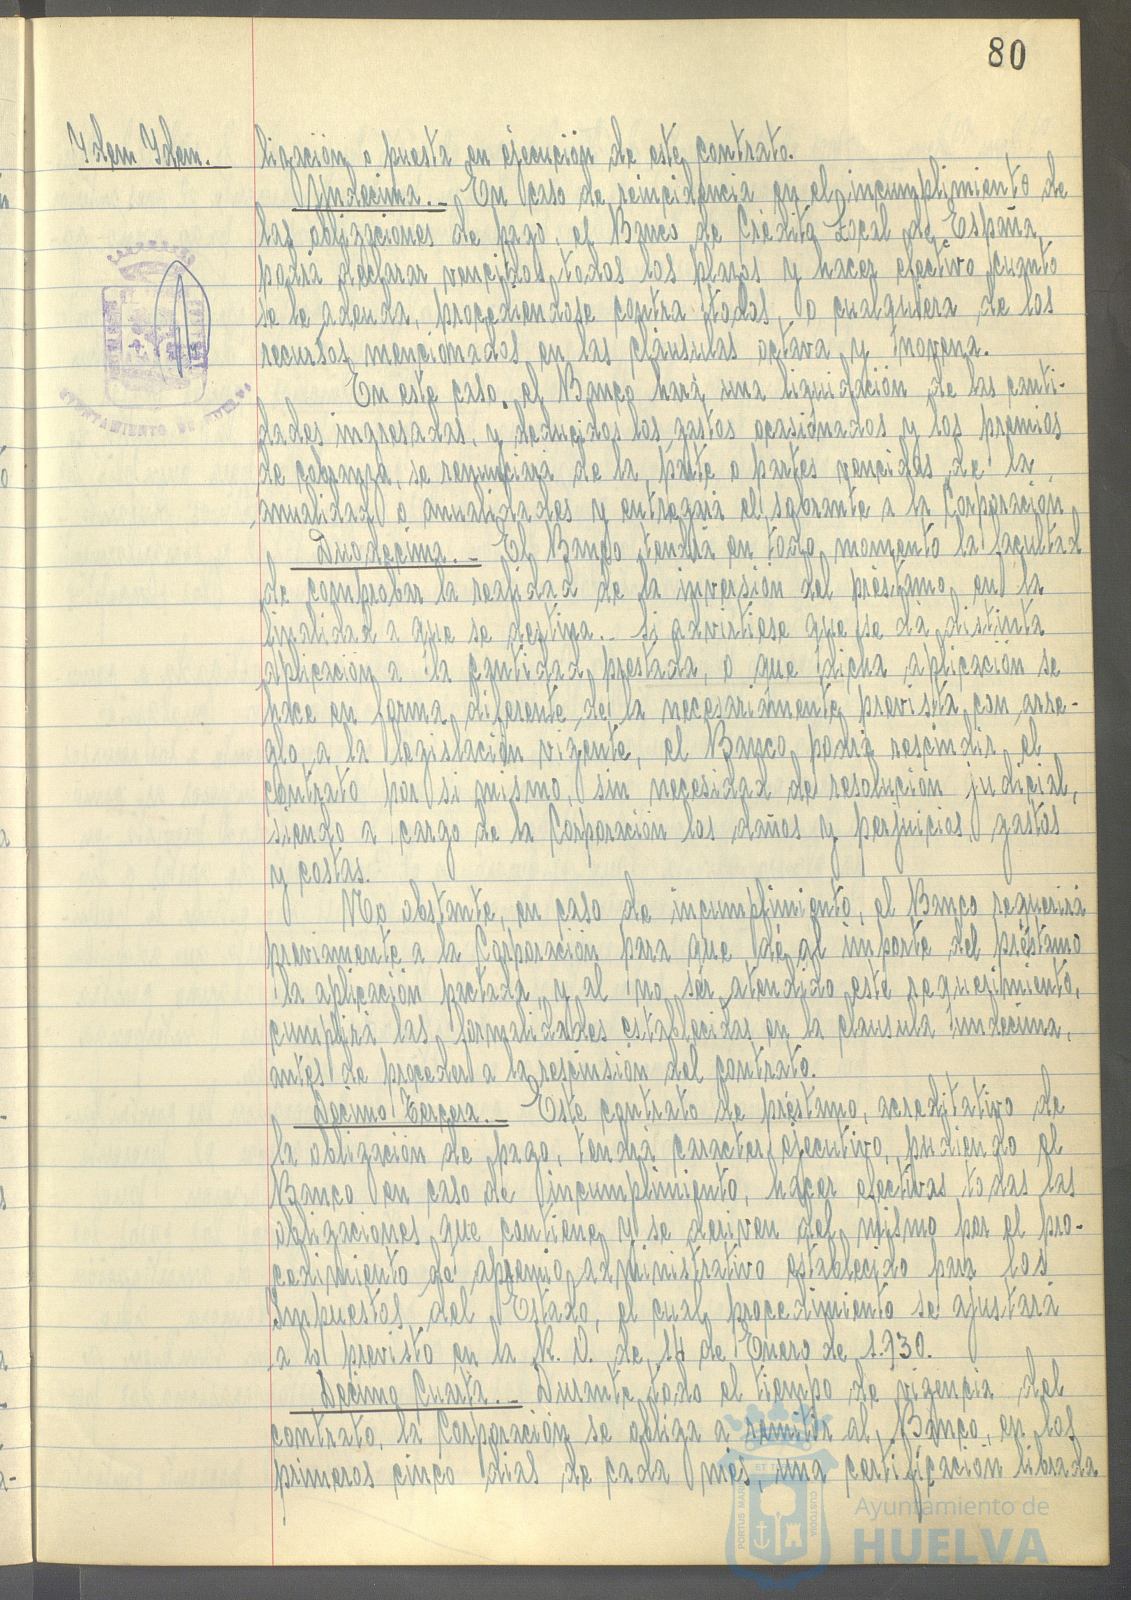 80
Ydem Ydem.
lización o puesta en ejecución de este contrato.
Undecima.- En caso de reincidencia en el incumplimiento de
las obligaciones de pago, el Banco de Crédito Local de España
podrá declarar vencidos todos los plazos y hacer efectivo cuanto
se le adeuda, procediendose contra todos, o cualquiera de los
recursos mencionados en las cláusulas octava y novena.
En este caso, el Banco hará una liquidación de las canti-
dades ingresadas, y deducidos los gastos ocasionados y los premios
de cobranza, se de la parte o partes vencidas de la
anualidad o anualidades y entregará el sobrante a la Corporación.
Duodecima.- El Banco tendrá en todo momento la facultad
de comprobar la realidad de la inversión del préstamo en la
finalidad a que se destina.- Si advirtiese que se dá distinta
aplicación a la cantidad prestada, o que dicha aplicación se
hace en forma diferente de la necesariamente prevista con arre-
glo a la legislación vigente, el Banco podrá rescindir el
contrato por si mismo, sin necesidad de resolución judicial,
siendo a cargo de la Corporación los daños y perjuicios gastos
y costas.
No obstante, en caso de incumplimiento, el Banco requerirá
previamente a la Corporación para que dé al importe del préstamo
la aplicación pactada y al no ser atendido este requerimiento,
cumplirá las formalidades establecidas en la clausula undecima,
antes de proceder a la rescisión del contrato.
Decimo Tercera.- Este contrato de préstamo, acreditativo de
la obligación de pago, tendrá caracter ejecutivo, pudiendo el
Banco en caso de incumplimiento, hacer efectivas todas las
obligaciones que contiene y se deriven del mismo por el pro-
cedimiento de apremio administrativo establecido para los
impuestos del Estado, el cual procedimiento se ajustará
a lo previsto en la R. O. de 14 de Enero de 1.930.
Decimo Cuarta.- Durante todo el tiempo de vigencia del
contrato, la Corporación se obliga a remitir al Banco, en los
primeros cinco dias de cada mes, una certificación librada
AYUNTAMIENTO DE HUELVA
PORTUS MARIS ET TERRAE CUSTODIA
Ayuntamiento de
HUELVA